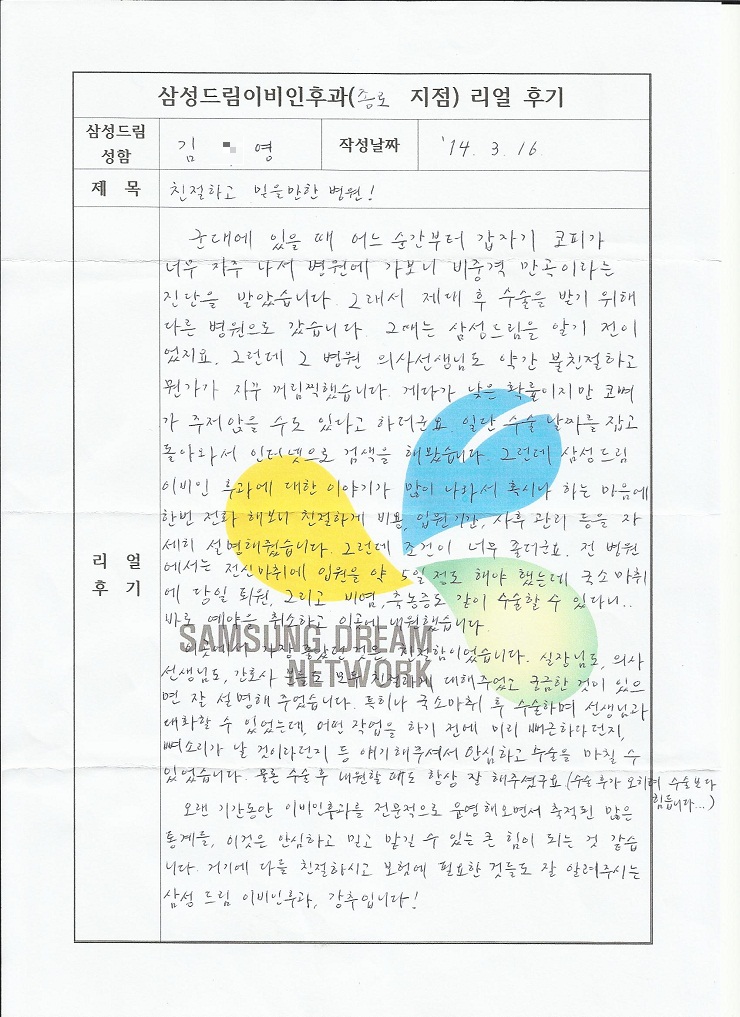 삼성드림이비인후과(종로 지점) 리얼 후기
삼성드림
성함
김 영
작성날짜
'14. 3. 16
제 목
친절하고 믿을만한 병원!
리 얼
후 기
군대에 있을 때 어느 순간부터 갑자기 코피가
너무 자주 나서 병원에 가보니 비중격 만곡이라는
진단을 받았습니다. 그래서 제대 후 수술을 받기 위해
다른 병원으로 갔습니다. 그때는 삼성드림을 알기 전이
었지요. 그런데 그 병원 의사선생님도 약간 불친절하고
뭔가가 자꾸 꺼림찍했습니다. 게다가 낮은 확률이지만 코뼈
가 주저앉을 수도 있다고 하더군요. 일단 수술 날짜를 잡고
돌아와서 인터넷으로 검색을 해봤습니다. 그런데 삼성드림
이비인 후과에 대한 이야기가 많이 나와서 혹시나 하는 마음에
한번 전화 해보니 친절하게 비용, 입원기간, 사후 관리 등을 자
세히 설명해줬습니다. 그런데 조건이 너무 좋더군요. 전 병원
에서는 전신마취에 입원을 약 5일 정도 해야 했는데 국소마취
에 당일 퇴원, 그리고 비염, 축농증도 같이 수술할 수 있다니..
바로 예약을 취소하고 이곳에 내원했습니다.
이곳에서 가장 좋았던 것은 친절함이었습니다. 실장님도, 의사
선생님도, 간호사 분들도 모두 친절하게 대해주었고 궁금한 것이 있으
면 잘 설명해 주었습니다. 특히나 국소마취 후 수술하며 선생님과
대화할 수 있었는데, 어떤 작업을 하기 전에 미리 뻐근하다던지,
뼈소리가 날 것이라던지 등 얘기해주셔서 안심하고 수술을 마칠 수
있었습니다. 물론 수술 후 내원할 때도 항상 잘 해주셨구요 (수술 후가 오히려 수술보다
힘듭니다...)
오랜 기간동안 이비인후과를 전문적으로 운영해오면서 축적된 많은
통계들, 이것은 안심하고 믿고 맡길 수 있는 큰 힘이 되는 것 같습
니다. 거기에 다들 친절하시고 보험에 필요한 것들도 잘 알려주시는
삼성 드림 이비인후과, 강추입니다!
SAMSUNG DREAM
NETWORK